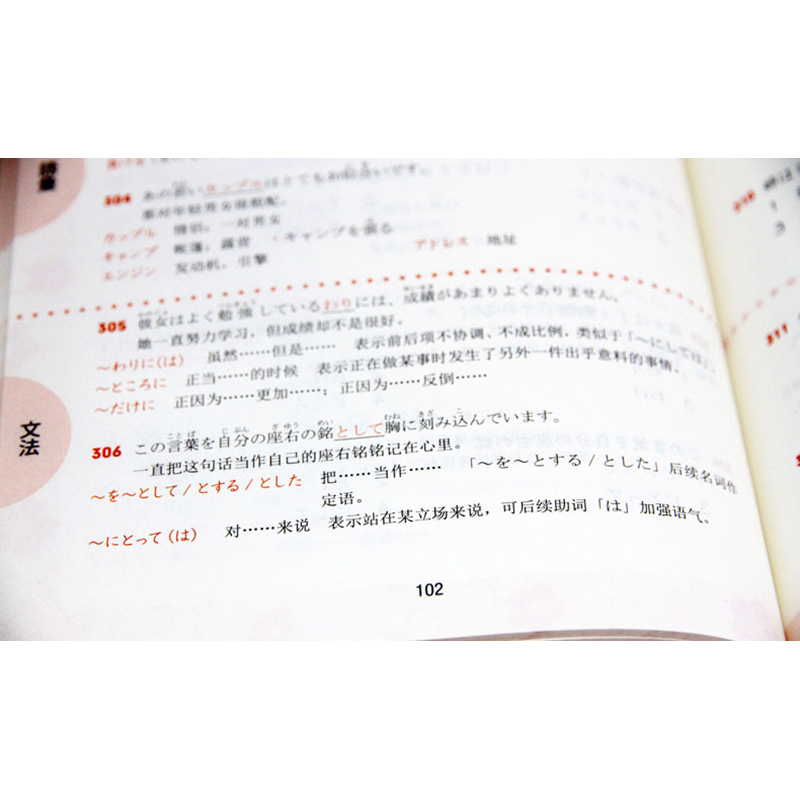 304 あの若いカップルはとてもお似合いです。
那对年轻男女很般配。
カップル 情侣，一对男女
キャンプ 帐篷，露营 ・キャンプを張る アドレス 地址
エンジン 发动机，引擎
305 彼女はよく勉強しているわりには、成績があまりよくありません。
她一直努力学习，但成绩却不是很好。
～わりに(は) 虽然……但是…… 表示前后项不协调、不成比例，类似于「～にしては」。
～ところに 正当……的时候 表示正在做某事时发生了另外一件出乎意料的事情。
～だけに 正因为……更加……；正因为……反倒……
文法
306 この言葉を自分の座右の銘として胸に刻み込んでいます。
一直把这句话当作自己的座右铭铭记在心里。
～を～として/とする/とした 把……当作…… 「～を～とする/とした」后续名词作
定语。
～にとって(は) 对……来说 表示站在某立场来说，可后续助词「は」加强语气。
102
310
1
3
311